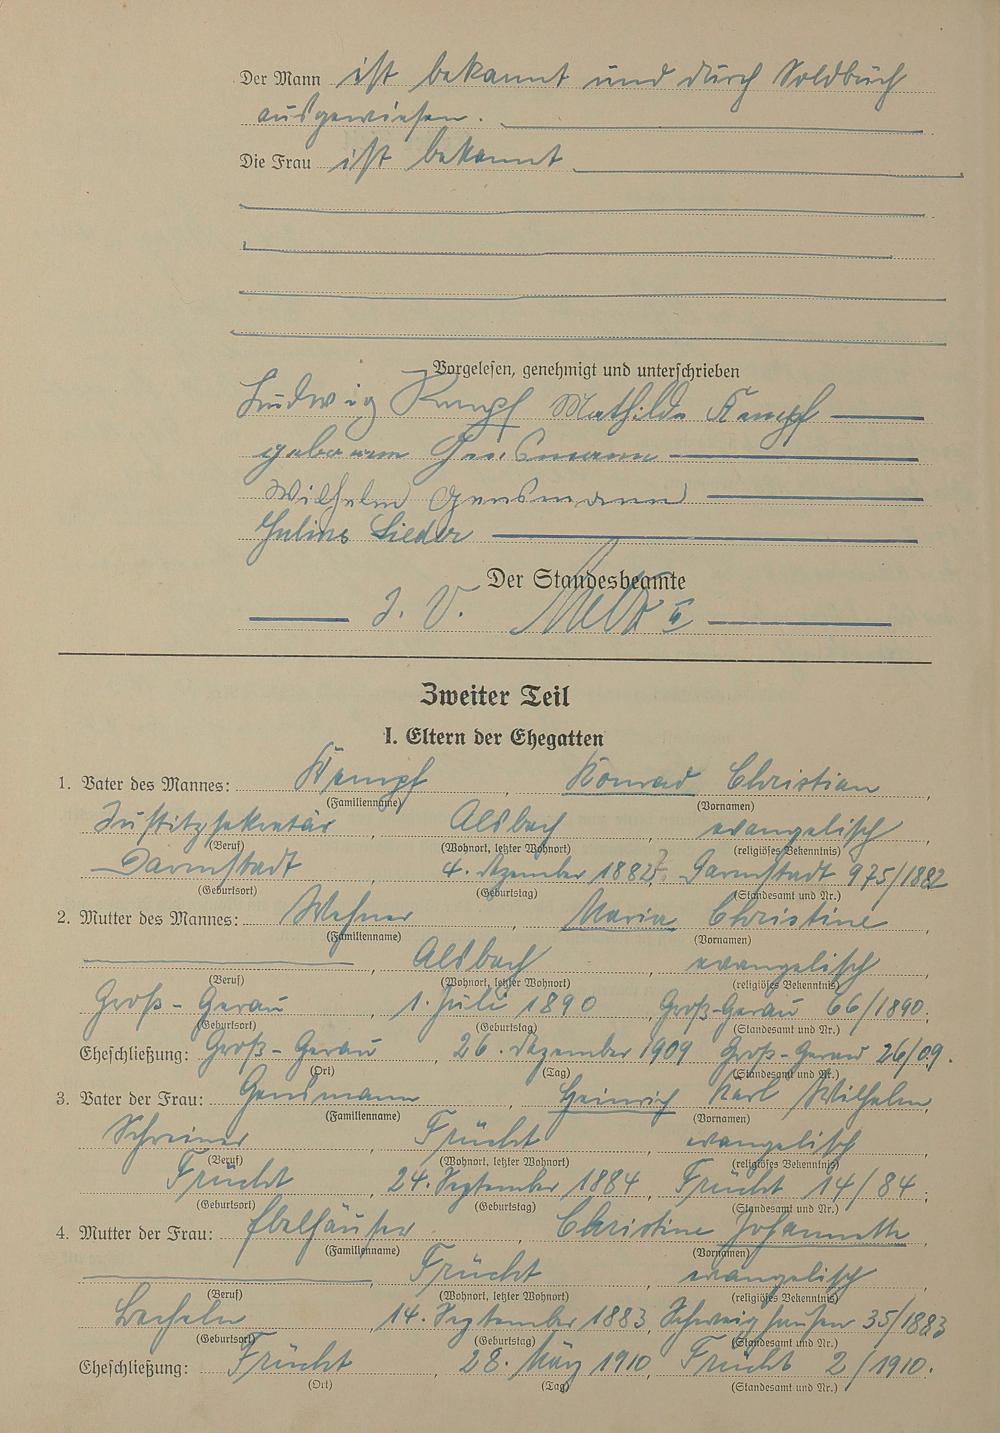 Der Mann ist bekannt und durch Soldbuch
ausgewiesen.
Die Frau ist bekannt
Vorgelesen, genehmigt und unterschrieben
Ludwig Kempf Mathilde Kempf
geborene Gensmann
Wilhelm Gensmann
Julius Lieder
Der Standesbeamte
J. V.
Zweiter Teil
I. Eltern der Ehegatten
1. Vater des Mannes: Kempf, Konrad Christian,
(Familienname) (Vornamen)
Justitzsekretär, Alsbach, evangelisch
(Beruf) (Wohnort, letzter Wohnort) (religiöses Bekenntnis)
Darmstadt, 4. Dezember 1882, Darmstadt 975/1882
(Geburtsort) (Geburtstag) (Standesamt und Nr.)
2. Mutter des Mannes: Wehner, Maria Christine,
(Familienname) (Vornamen)
, Alsbach, evangelisch
(Beruf) (Wohnort, letzter Wohnort) (religiöses Bekenntnis)
Groß-Gerau, 1. Juli 1890, Groß-Gerau 66/1890;
(Geburtsort) (Geburtstag) (Standesamt und Nr.)
Eheschließung: Groß-Gerau, 26. Dezember 1909 Groß-Gerau 26/09.
(Ort) (Tag) (Standesamt und Nr.)
3. Vater der Frau: Gensmann, Heinrich Karl Wilhelm,
(Familienname) (Vornamen)
Schreiner, Frücht, evangelisch
(Beruf) (Wohnort, letzter Wohnort) (religiöses Bekenntnis)
Frücht, 24. September 1884, Frücht 14/84;
(Geburtsort) (Geburtstag) (Standesamt und Nr.)
4. Mutter der Frau: Ebelhäuser, Christine Johannette,
(Familienname) (Vornamen)
, Frücht, evangelisch
(Beruf) (Wohnort, letzter Wohnort) (religiöses Bekenntnis)
Becheln, 14. September 1883, Schweighausen 35/1883
(Geburtsort) (Geburtstag) (Standesamt und Nr.)
Eheschließung: Frücht, 28. März 1910, Frücht 2/1910.
(Ort) (Tag) (Standesamt und Nr.)